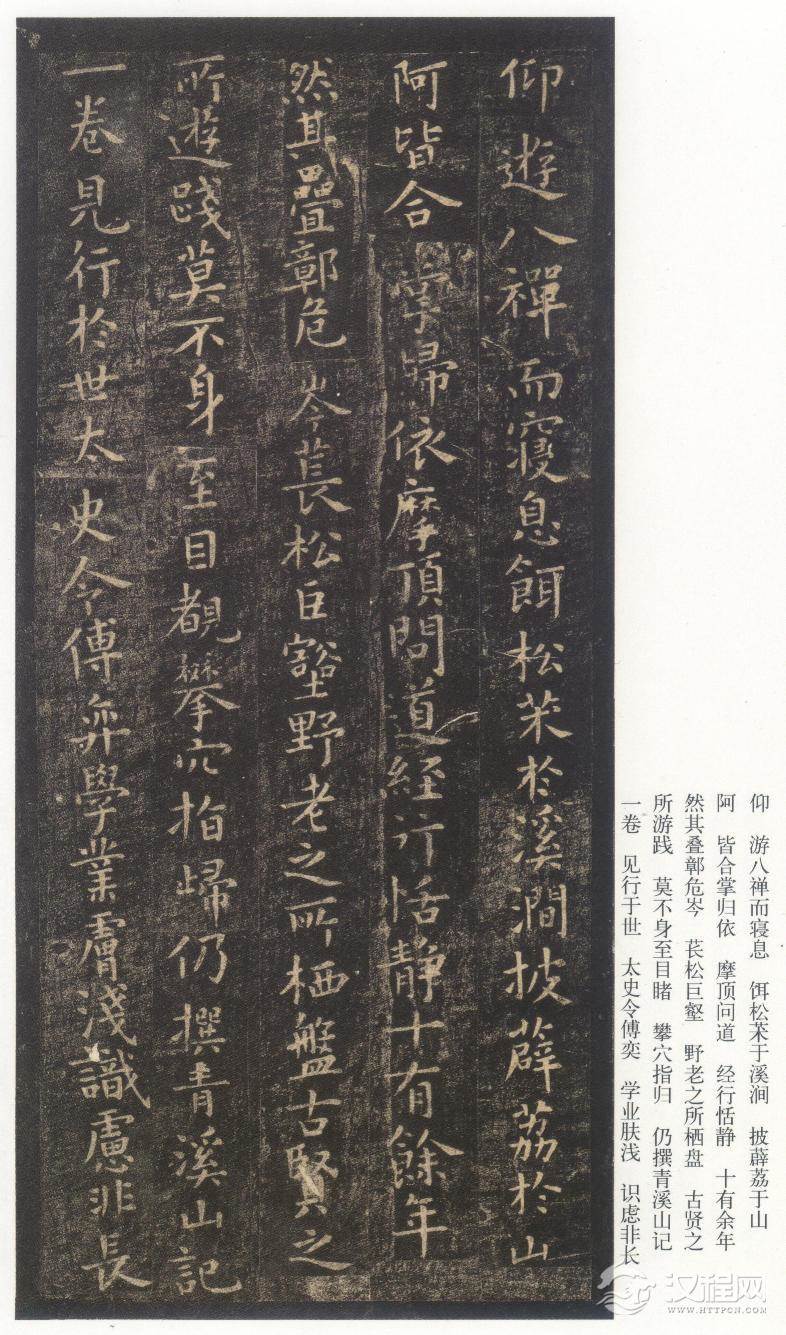 仰遊八禪而寢息餌松茶於溪澗披薜荔於山
阿皆合掌歸依摩頂問道經行恬静十有餘年
然其疊鄣危岑萇松巨壑野老之所栖盤古賢之
所遊踐莫不身至目覩攀穴指歸仍撰青溪山記
一卷見行於世太史令傅弈學業膚淺識慮非長
仰 游八禅而寝息 饵松茶于溪涧 披薜荔于山
阿 皆合掌归依 摩顶问道 经行恬静 十有余年
然其叠鄣危岑 苌松巨壑 野老之所栖盘 古贤之
所游践 莫不身至目睹 攀穴指归 仍撰青溪山记
一卷 见行于世 太史令傅奕 学业肤浅 识虑非长
汉程网
WWW.HTTPCN.COM